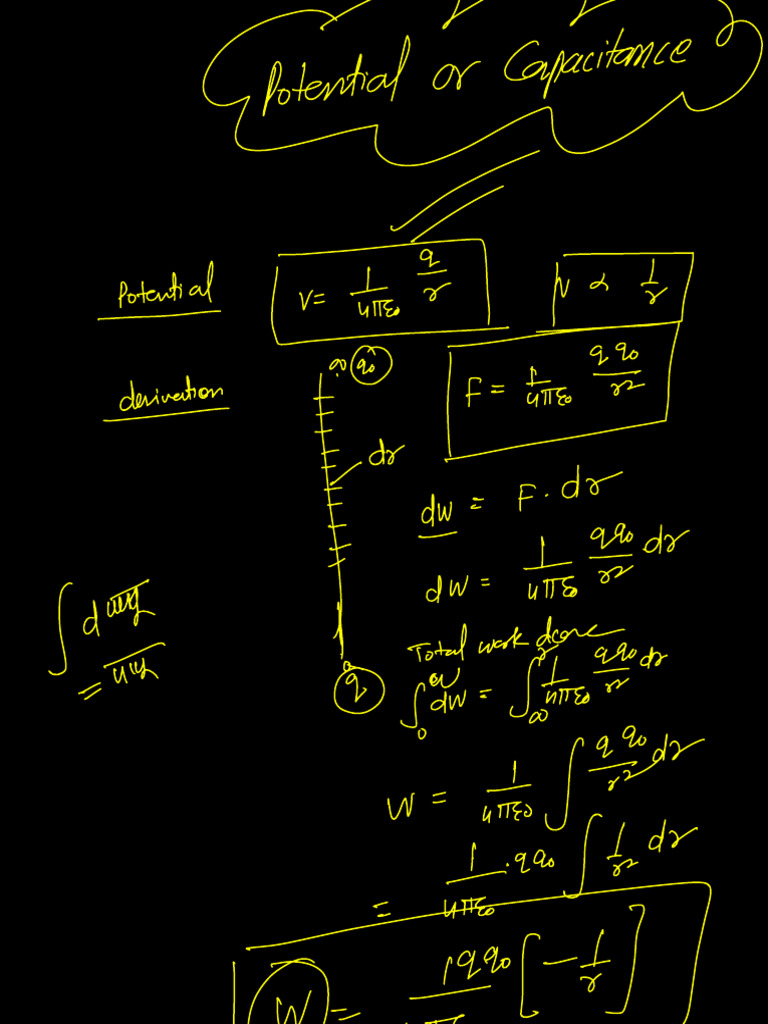 Potential or Capacitance
Potential V = 1/4πε₀ q/r V ∝ 1/r
∞ q₀ F = 1/4πε₀ qq₀/r²
derivation
dr
dw = F · dr
dw = 1/4πε₀ qq₀/r² dr
Total work done
q ∫₀ʷ dw = ∫∞ʳ 1/4πε₀ qq₀/r² dr
∫ d
=
W = 1/4πε₀ ∫ q q₀/r² dr
= 1/4πε₀ · qq₀ ∫ 1/r² dr
W = 1qq₀ [ - 1/r ]